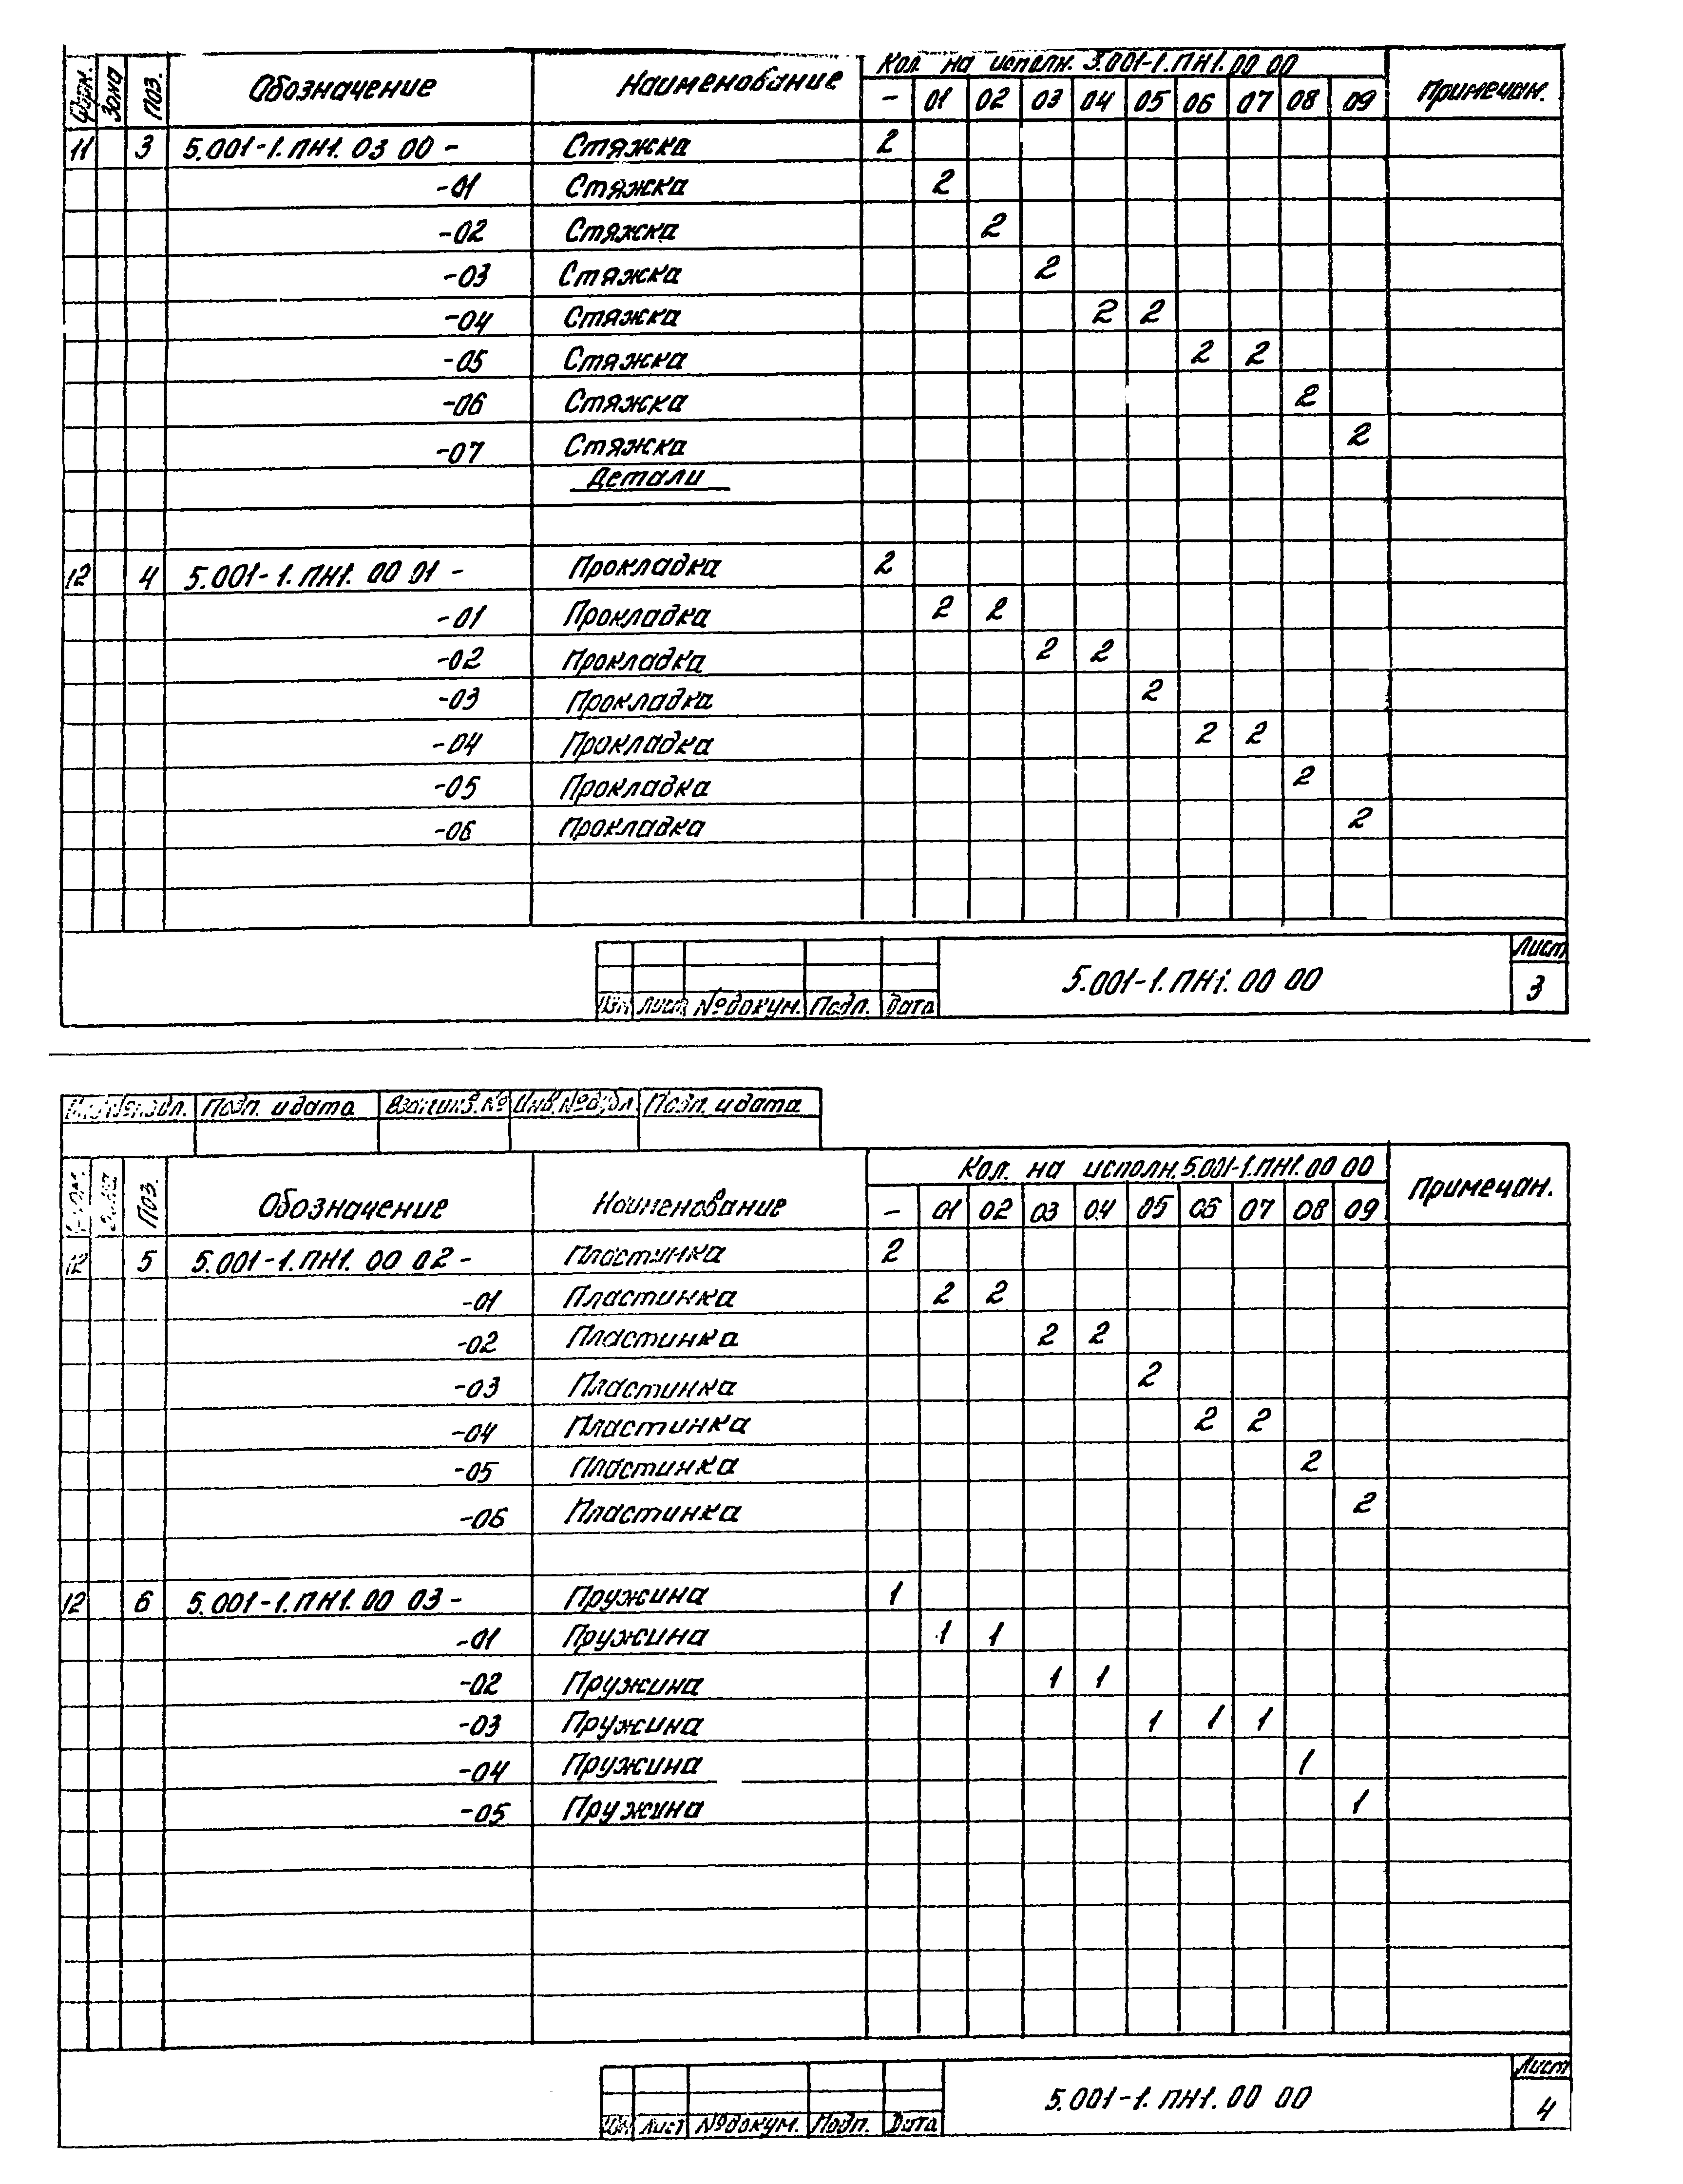 Форм. Зона Поз. Обозначение Наименование Кол. на исполн. 3.001-1.ПН1.00 00 Примечан.
- 01 02 03 04 05 06 07 08 09
11 3 5.001-1.ПН1. 03 00 - Стяжка 2
-01 Стяжка 2
-02 Стяжка 2
-03 Стяжка 2
-04 Стяжка 2 2
-05 Стяжка 2 2
-06 Стяжка 2
-07 Стяжка 2
Детали
12 4 5.001-1.ПН1. 00 01 - Прокладка 2
-01 Прокладка 2 2
-02 Прокладка 2 2
-03 Прокладка 2
-04 Прокладка 2 2
-05 Прокладка 2
-06 Прокладка 2
Лист
5.001-1.ПН1.00 00 3
Изм Лист № докум. Подп. Дата
Инв. № подл. Подп. и дата Взам. инв. № Инв. № дубл. Подп. и дата
Форм. Зона Поз. Обозначение Наименование Кол. на исполн. 5.001-1.ПН1.00 00 Примечан.
- 01 02 03 04 05 06 07 08 09
12 5 5.001-1.ПН1. 00 02 - Пластинка 2
-01 Пластинка 2 2
-02 Пластинка 2 2
-03 Пластинка 2
-04 Пластинка 2 2
-05 Пластинка 2
-06 Пластинка 2
12 6 5.001-1.ПН1. 00 03 - Пружина 1
-01 Пружина 1 1
-02 Пружина 1 1
-03 Пружина 1 1 1
-04 Пружина 1
-05 Пружина 1
Лист
5.001-1.ПН1.00 00 4
Изм Лист № докум. Подп. Дата